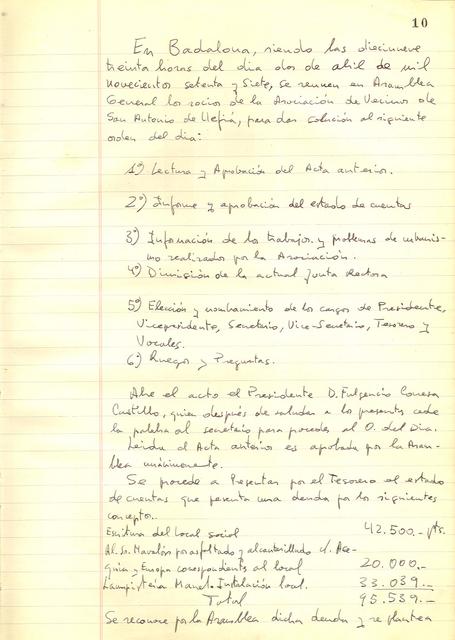 10
En Badalona, siendo las diecinueve
treinta horas del dia dos de abril de mil
novecientos setenta y Siete, se reunen en Asamblea
General los socios de la Asociación de Vecinos de
San Antonio de Llefiá, para dar solución al siguiente
orden del dia:
1º) Lectura y Aprobación del Acta anterior.
2º) Informe y aprobación del estado de cuentas
3º) Información de los trabajos y problemas de urbanis-
mo realizados por la Asociación.
4º) Dimisión de la actual Junta Rectora
5º) Elección y nombramiento de los cargos de Presidente,
Vicepresidente, Secretario, Vice-Secretario, Tesorero y
Vocales.
6º) Ruegos y Preguntas.
Abre el acto el Presidente D. Fulgencio Conesa
Castillo, quien después de saludar a los presentes cede
la palabra al secretario para proceder al O. del Dia.
Leida el Acta anterior es aprobada por la Asam-
blea unánimemente.
Se procede a Presentar por el Tesorero el estado
de cuentas que presenta una deuda por los siguientes
conceptos..
Escritura del Local social 42.500.- pts.
Al Sr. Mavalón por asfaltado y alcantarillado c/. Ace-
quia y Europa correspondiente al local 20.000.-
Lampistería Instalación local. 33.039.-
Total 95.539.-
Se reconoce por la Asamblea dicha deuda y se plantea